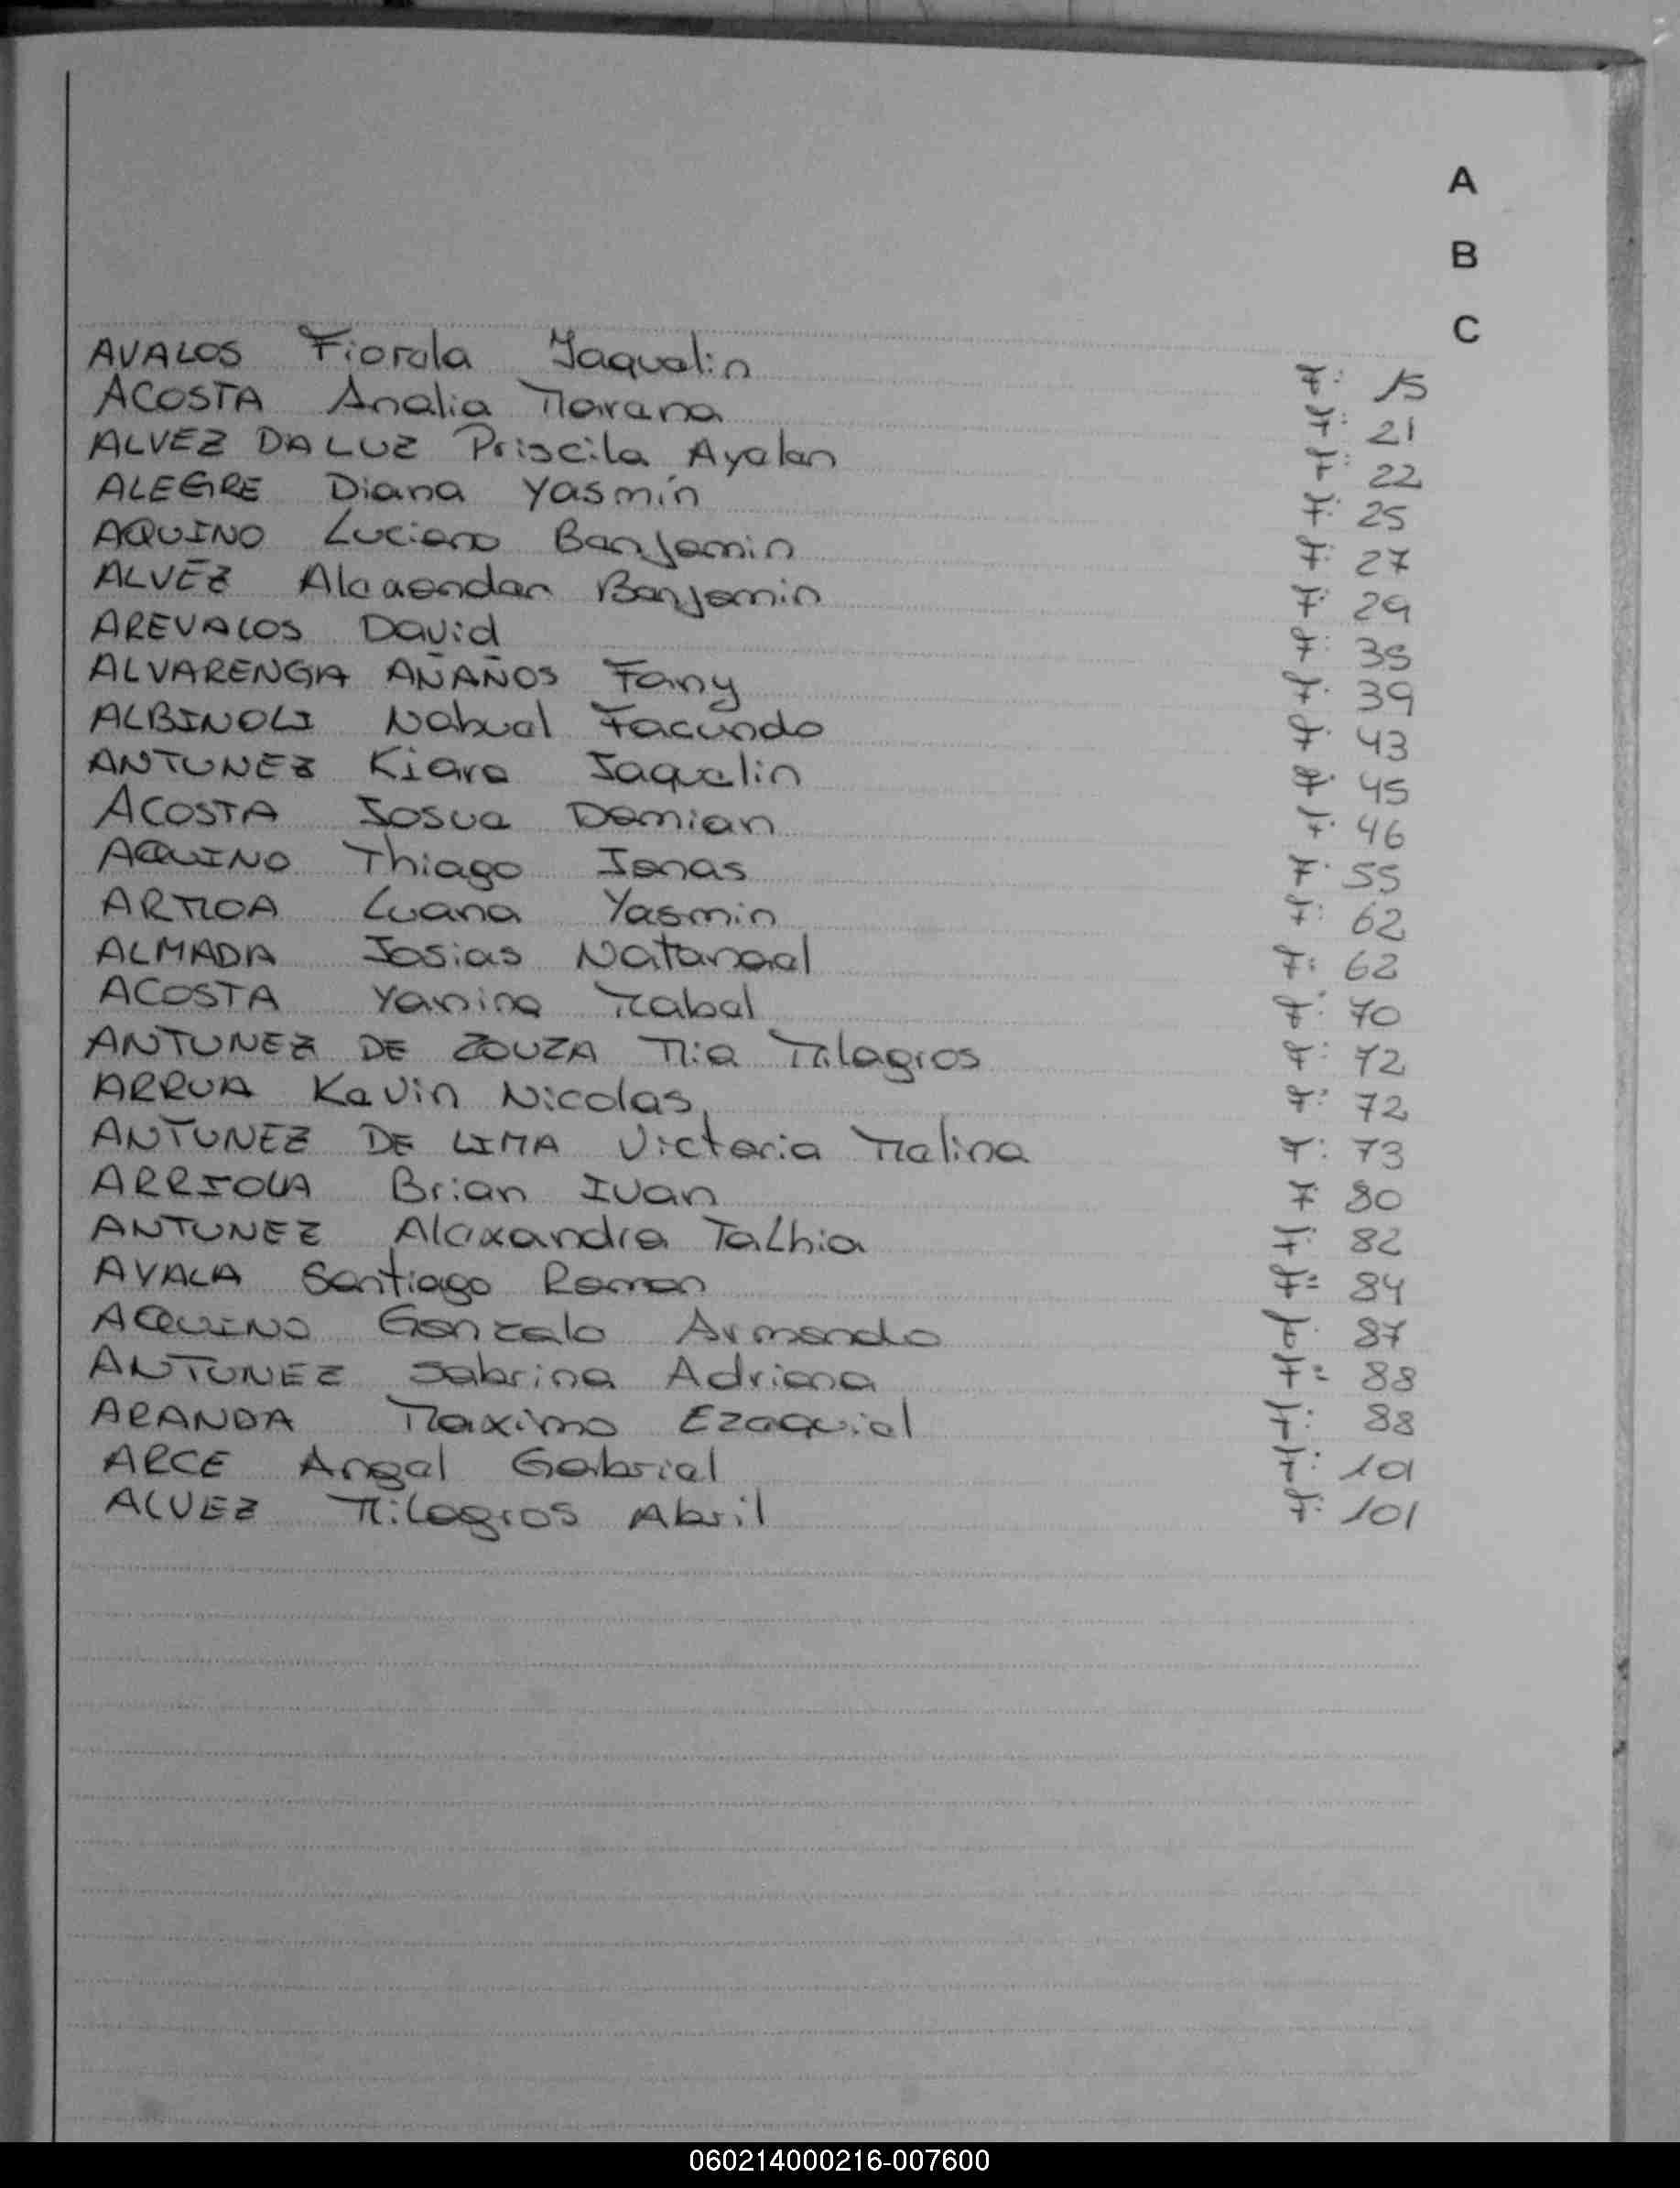 A
B
C
AVALOS Fiorela Yaquelin F: 15
ACOSTA Analia Morena F: 21
ALVEZ DA LUZ Priscila Ayelen F: 22
ALEGRE Diana Yasmín F: 25
AQUINO Luciano Benjamin F: 27
ALVEZ Benjamin F: 29
AREVALOS David F: 35
ALVARENGA AÑAÑOS Fany F: 39
ALBINOLI Nahuel Facundo F: 43
ANTUNEZ Kiara Jaquelin F: 45
ACOSTA Josue Demian F: 46
AQUINO Thiago Jonas F: 55
ARMOA Luana Yasmin F: 62
ALMADA Josias Natanael F: 62
ACOSTA Yanina Mabel F: 70
ANTUNEZ DE ZOUZA Mia Milagros F: 72
ARRUA Kevin Nicolas F: 72
ANTUNEZ DE LIMA Victoria Melina F: 73
ARRIOLA Brian Ivan F: 80
ANTUNEZ Alexandra Talhia F: 82
AYALA Santiago Ramon F: 84
AQUINO Gonzalo Armando F: 87
ANTUNEZ Sabrina Adriana F: 88
ARANDA Maximo Ezequiel F: 88
ARCE Angel Gabriel F: 101
ALVEZ Milagros Abril F: 101
060214000216-007600